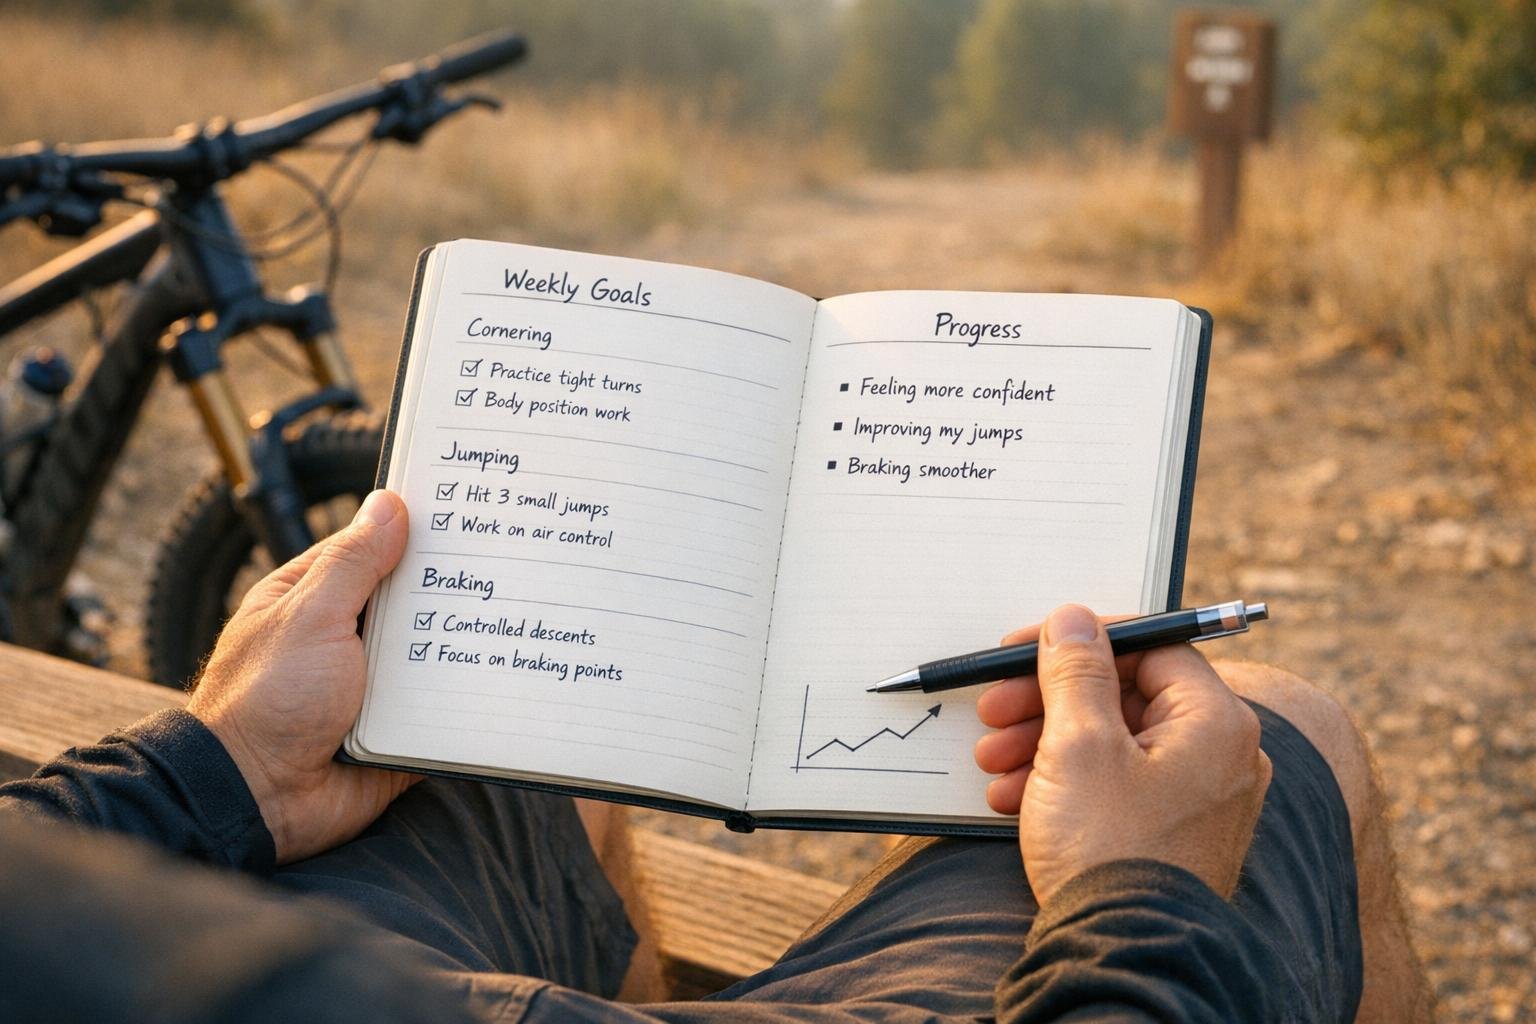 Weekly Goals
Cornering
Practice tight turns
Body position work
Jumping
Hit 3 small jumps
Work on air control
Braking
Controlled descents
Focus on braking points
Progress
Feeling more confident
Improving my jumps
Braking smoother